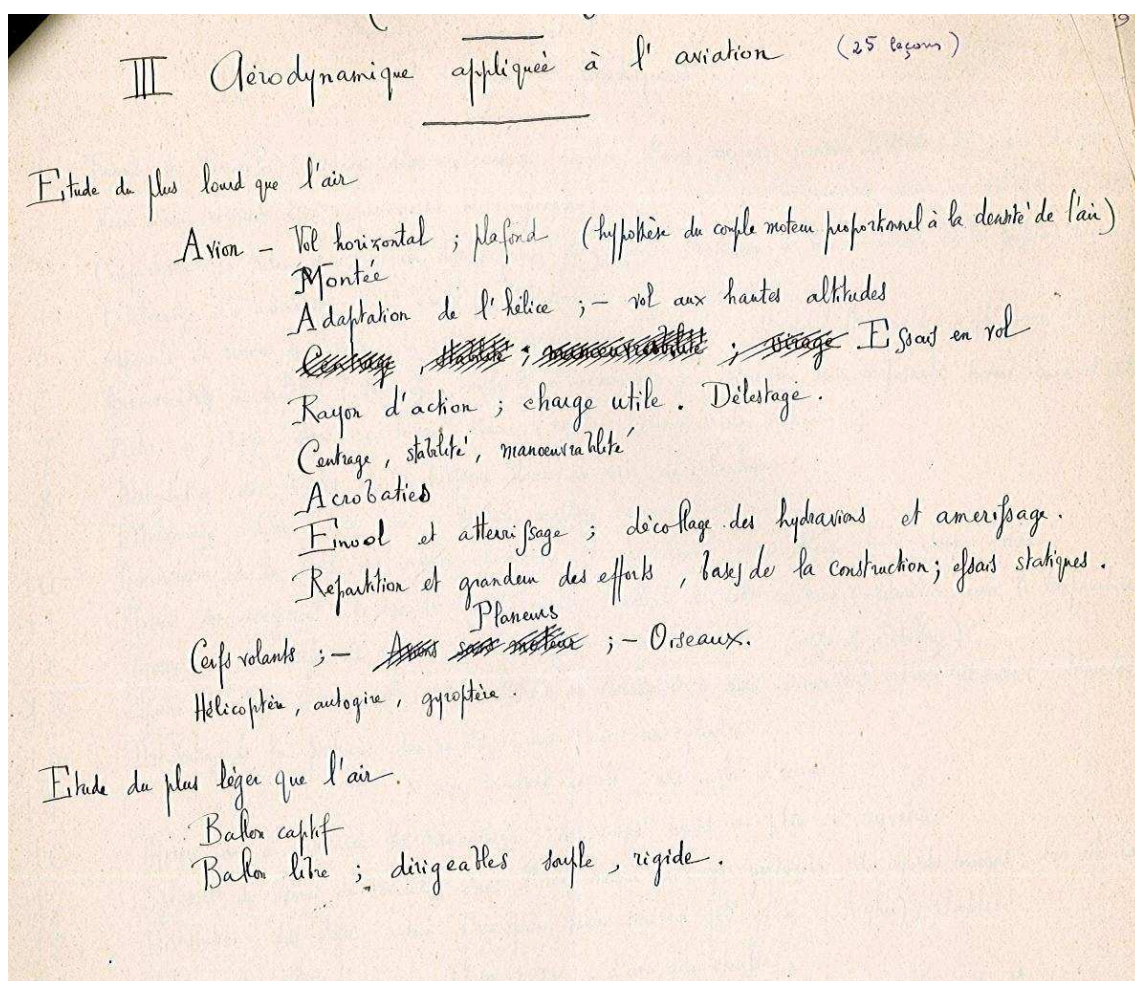 III Aérodynamique appliquée à l'aviation (25 leçons)
Etude du plus lourd que l'air
Avion - Vol horizontal ; plafond (hypothèse du couple moteur proportionnel à la densité de l'air)
Montée
Adaptation de l'hélice ; - vol aux hautes altitudes
Centrage, stabilité ; manoeuvrabilité ; virage Essais en vol
Rayon d'action ; charge utile. Délestage.
Centrage, stabilité, manoeuvrabilité
Acrobaties
Envol et atterrissage ; décollage des hydravions et amerissage.
Répartition et grandeur des efforts, bases de la construction ; essais statiques.
Planeurs
Cerfs volants ; - Avions sans moteur ; - Oiseaux.
Hélicoptère, autogire, gyroptère.
Etude du plus léger que l'air.
Ballon captif
Ballon libre ; dirigeables souple, rigide.